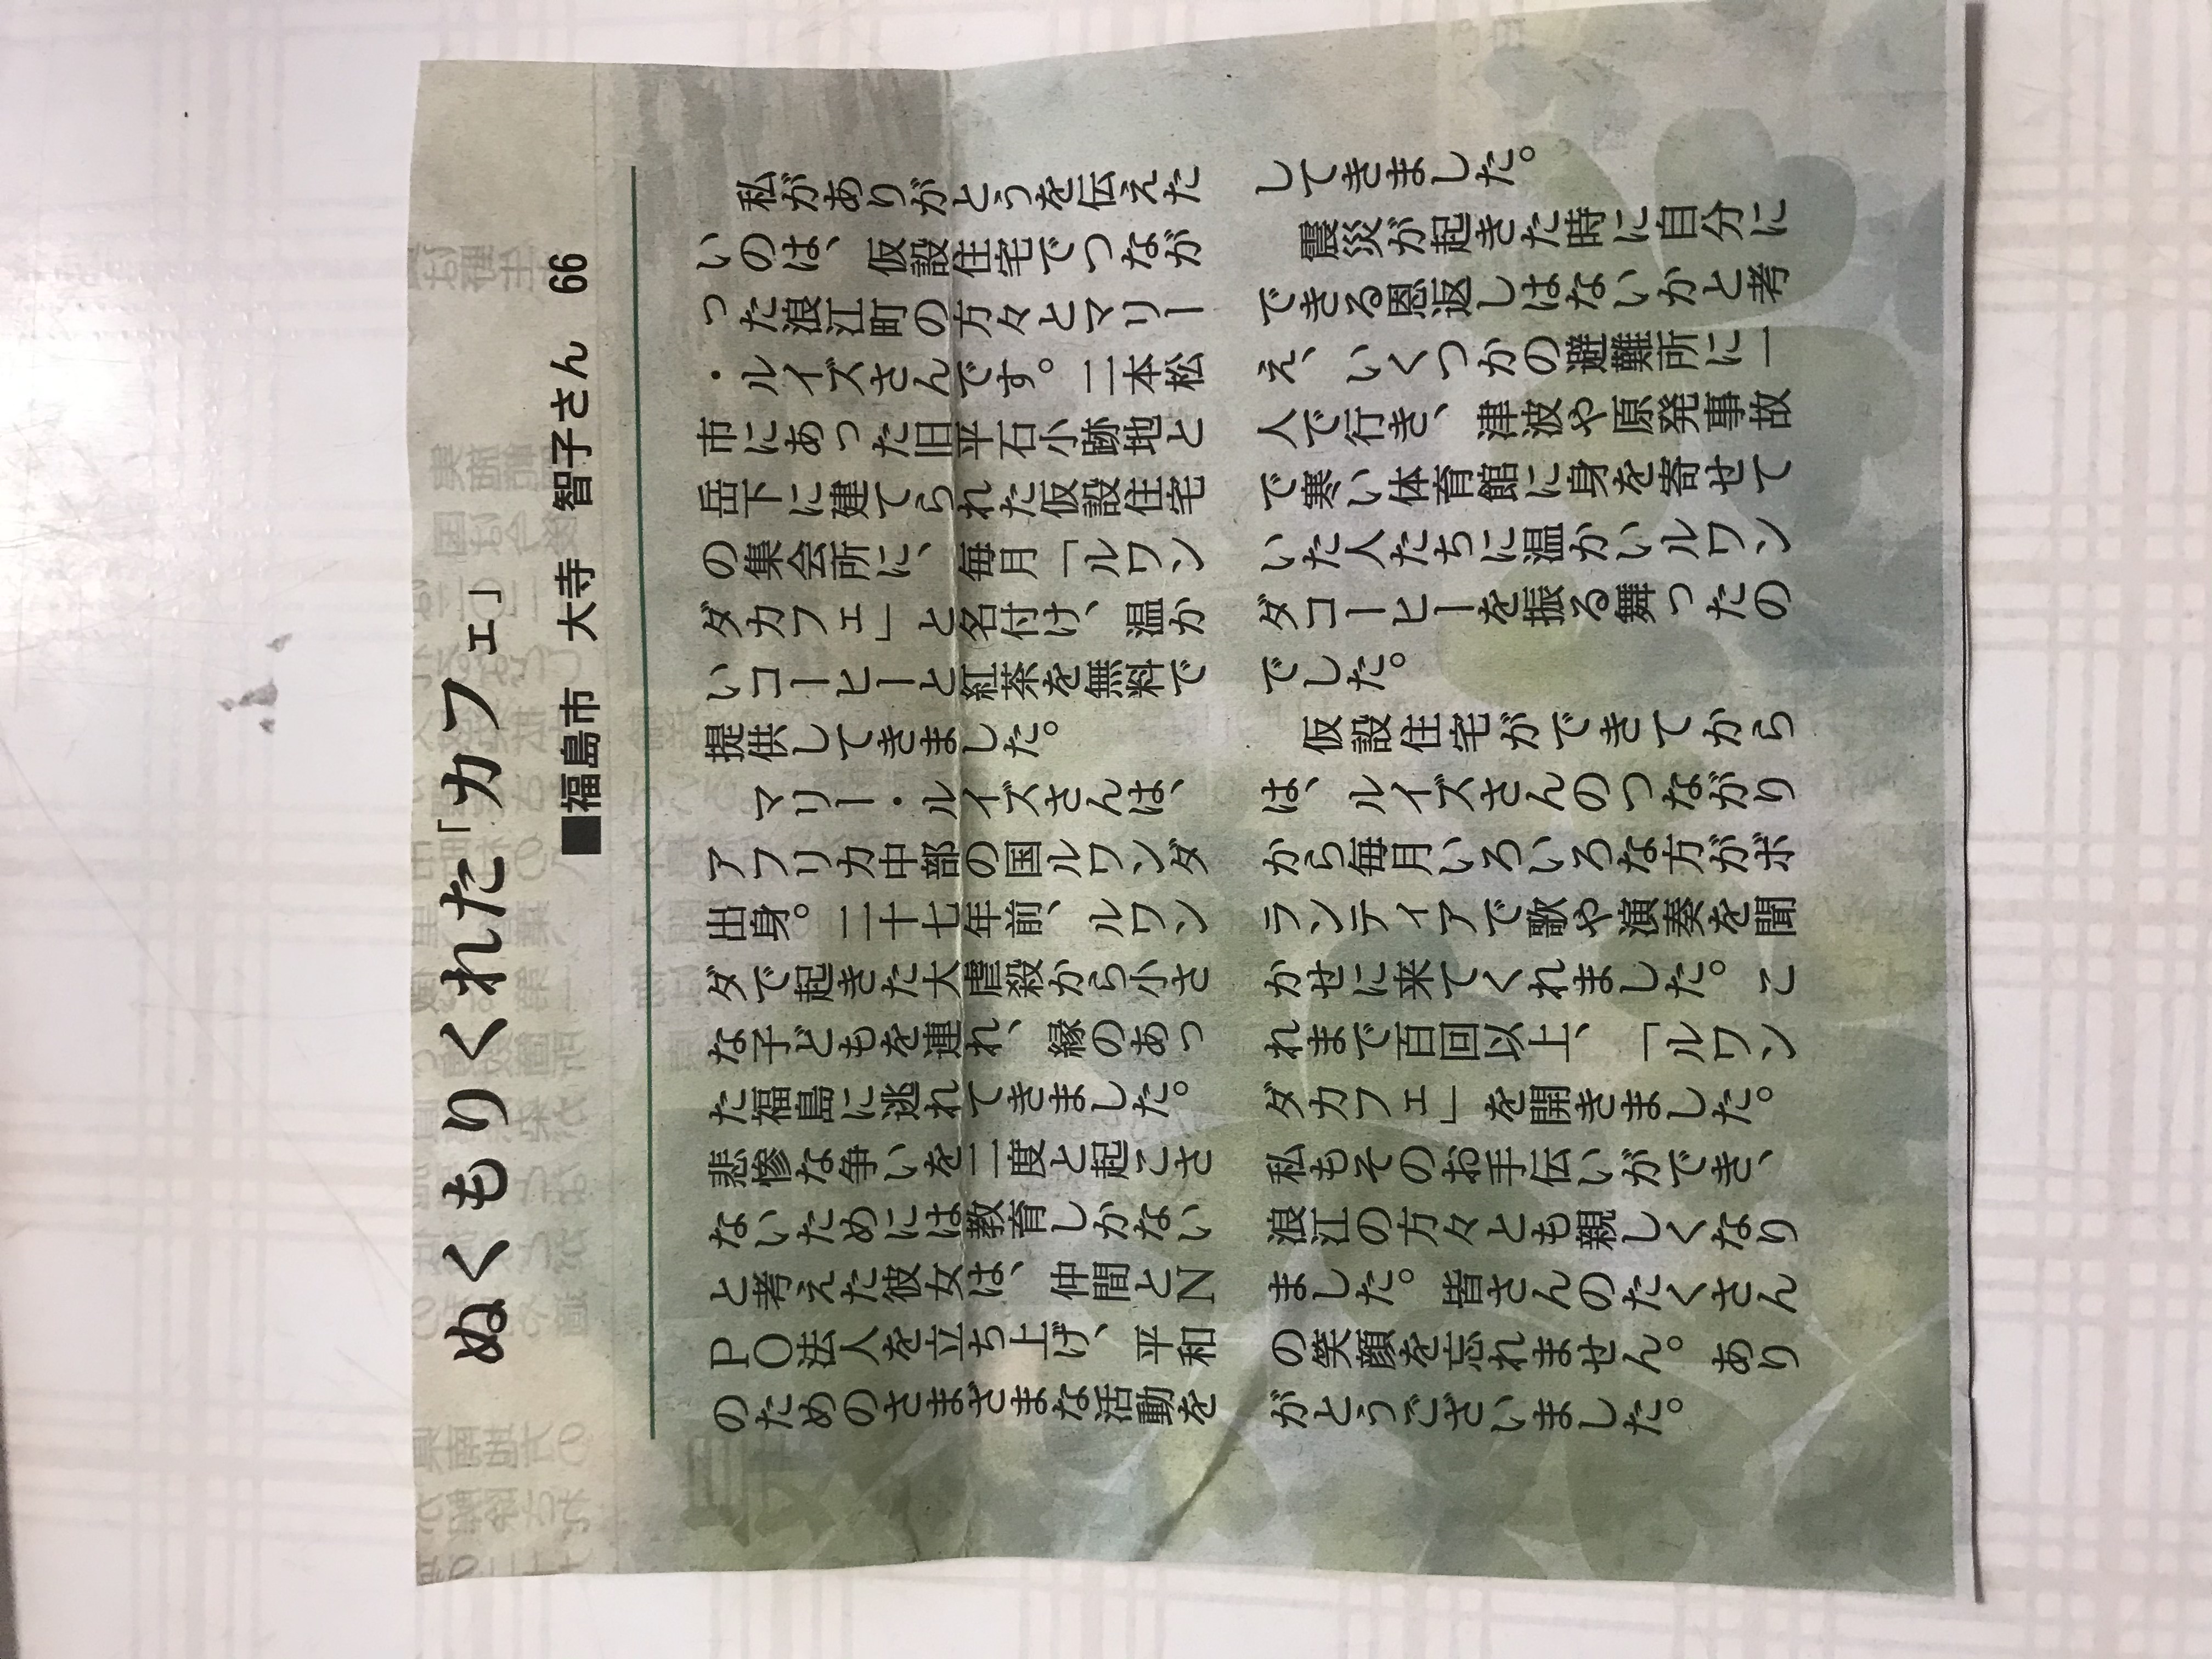 ぬくもりくれた「カフェ」
■福島市　大寺　智子さん　66
　私がありがとうを伝えた
いのは、仮設住宅でつなが
った浪江町の方々とマリー
・ルイズさんです。二本松
市にあった旧平石小跡地と
岳下に建てられた仮設住宅
の集会所に、毎月「ルワン
ダカフェ」と名付け、温か
いコーヒーと紅茶を無料で
提供してきました。
　マリー・ルイズさんは、
アフリカ中部の国ルワンダ
出身。二十七年前、ルワン
ダで起きた大虐殺から小さ
な子どもを連れ、縁のあっ
た福島に逃れてきました。
悲惨な争いを二度と起こさ
ないためには教育しかない
と考えた彼女は、仲間とN
PO法人を立ち上げ、平和
のためのさまざまな活動を
してきました。
　震災が起きた時に自分に
できる恩返しはないかと考
え、いくつかの避難所に一
人で行き、津波や原発事故
で寒い体育館に身を寄せて
いた人たちに温かいルワン
ダコーヒーを振る舞ったの
でした。
　仮設住宅ができてから
は、ルイズさんのつながり
から毎月いろいろな方がボ
ランティアで歌や演奏を聞
かせに来てくれました。こ
れまで百回以上、「ルワン
ダカフェ」を開きました。
私もそのお手伝いができ、
浪江の方々とも親しくなり
ました。皆さんのたくさん
の笑顔を忘れません。あり
がとうございました。